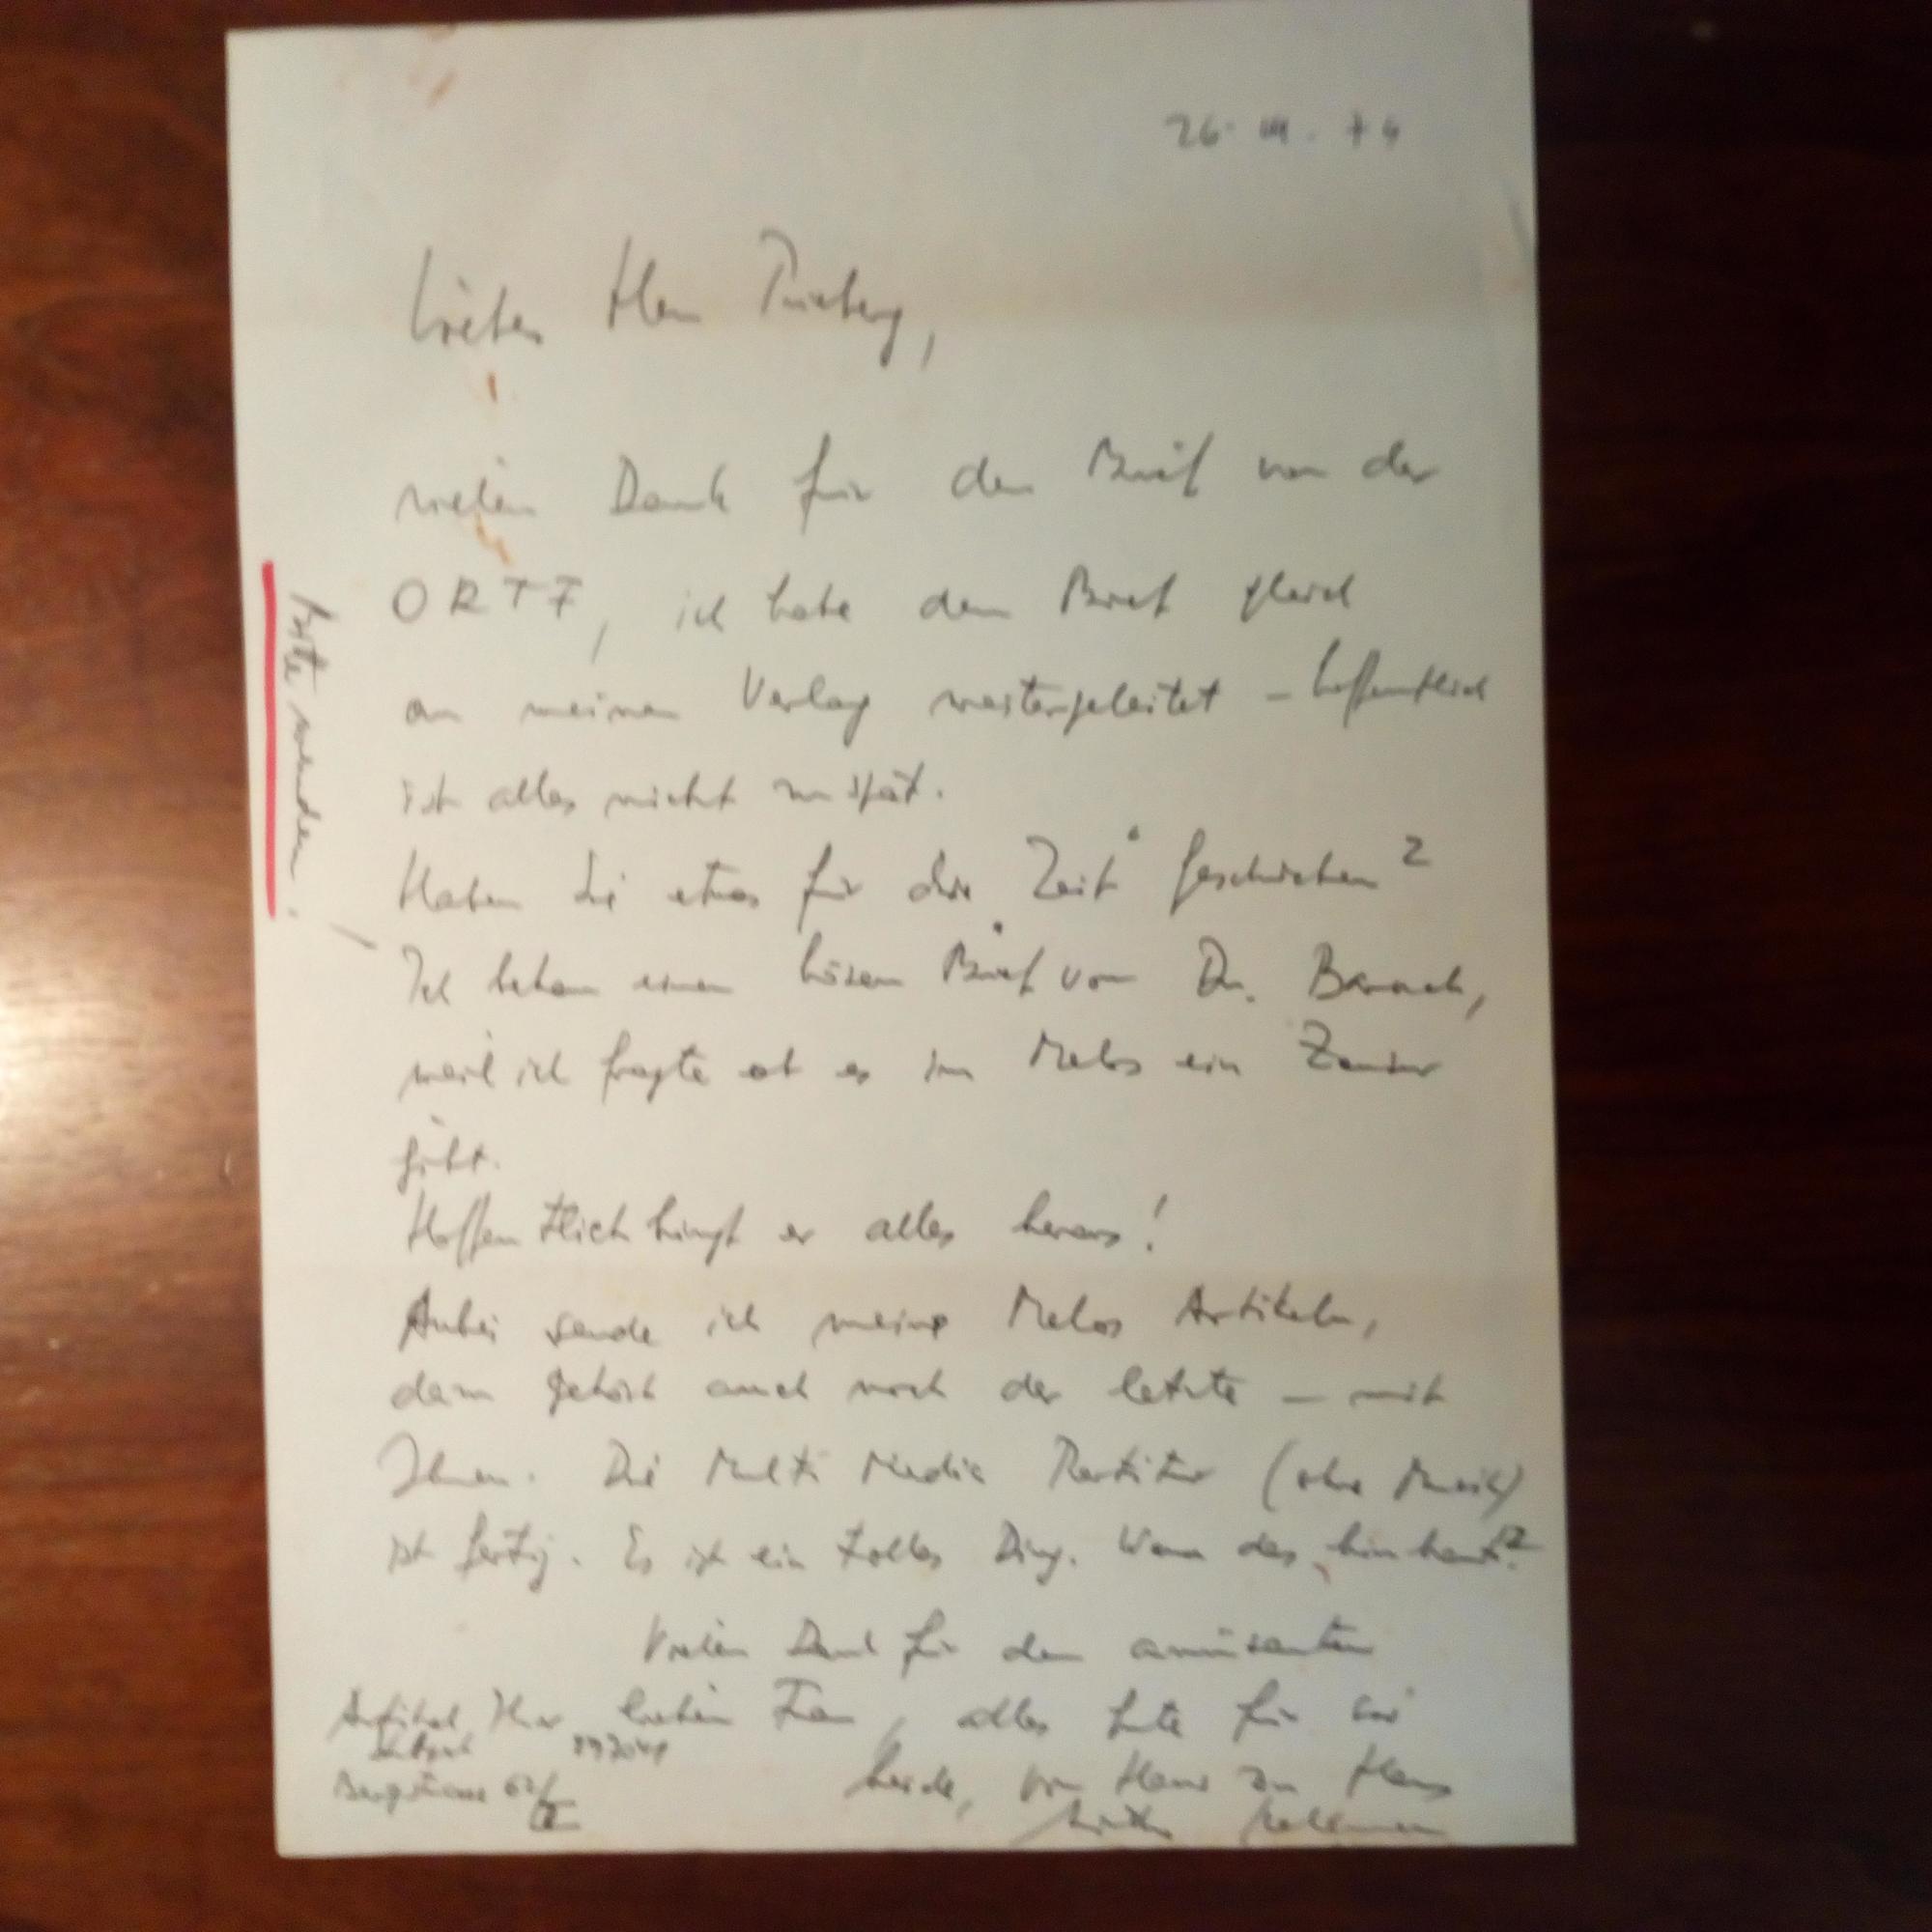 26. III. 74
Lieber Herr Prieberg,
vielen Dank für den Brief von der
ORTF, ich habe den Brief gleich
an meinen Verlag weitergeleitet – hoffentlich
ist alles nicht zu spät.
Haben Sie etwas für die "Zeit" geschrieben?
Ich bekam einen bösen Brief von Dr. Barach,
weil ich fragte ob es im Melos ein Zensur
gibt.
Hoffentlich bringt er alles heraus!
Anbei sende ich meine Melos Artikeln,
dazu gehört auch noch der letzte – mit
Ihnen. Die Multi Media Partitur (ohne Musik)
ist fertig. Es ist ein tolles Ding. Wenn das hinhaut?
Vielen Dank für den amüsanten
Artikel Ihrer lieben Frau, alles Gute für Sie
beide, von Haus zu Haus
Bergstrasse 62/II
bitte wenden.